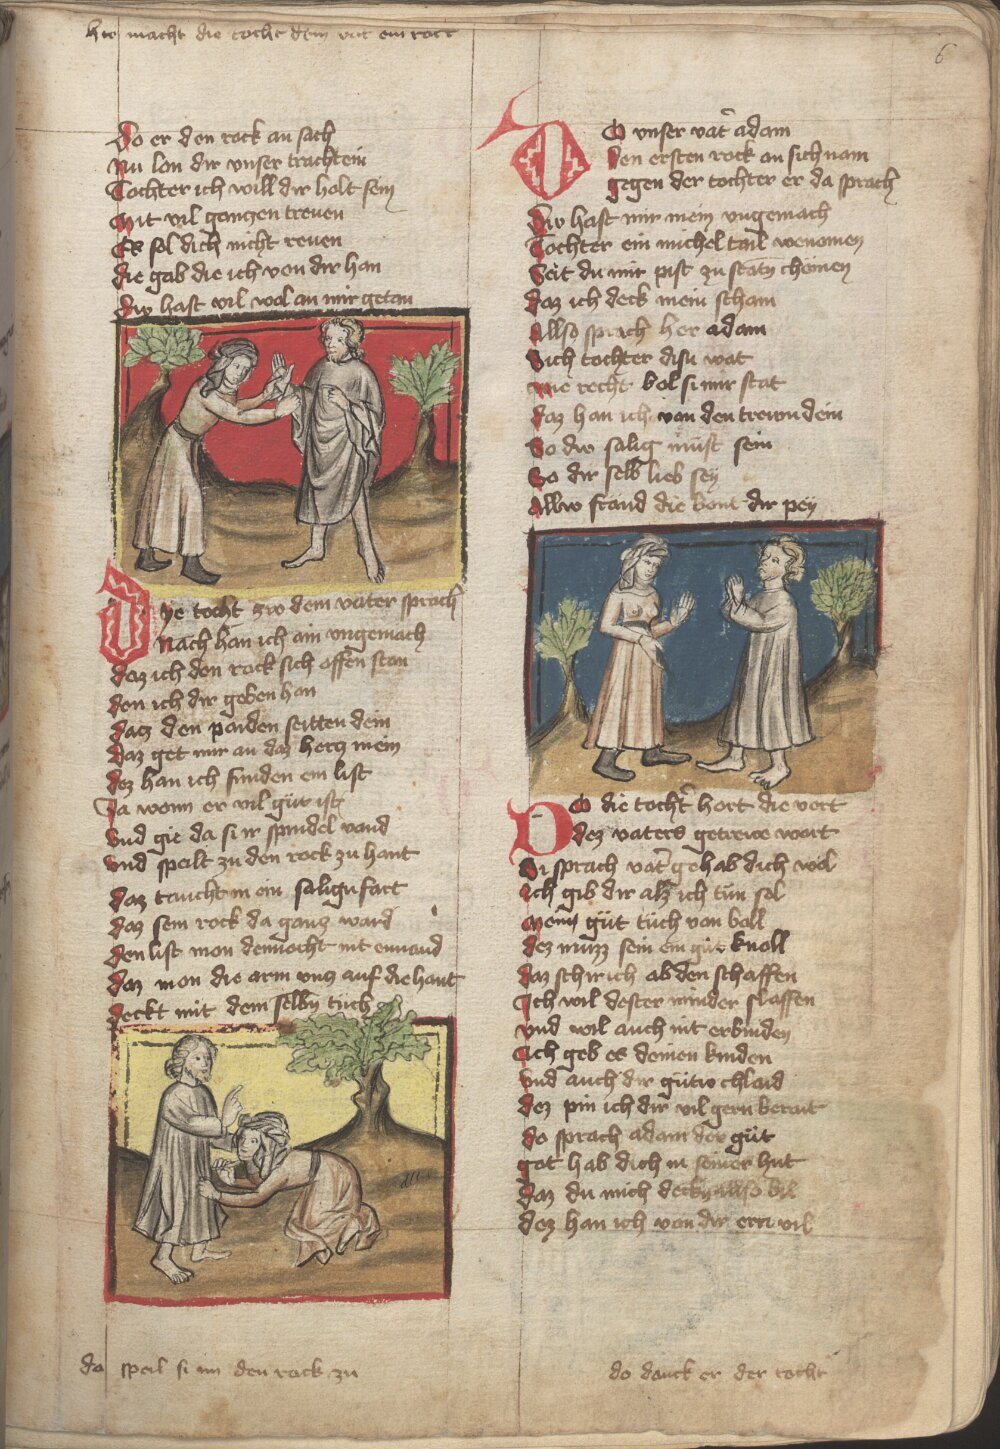 hie macht die tocht dem vat ein rock
6
Do er den rock an sach
Nu lon dir unser trachtein
Tochter ich will dir holt sein
Mit vil ganczen treuen
Es sol dich nicht reuen
die gab die ich von dir han
dw hast vil wol an mir getan
Dye tocht zw dem vater sprach
Nach han ich ain ungemach
daz ich den rock sich offen stan
den ich dir geben han
dacz den paiden seitten dein
daz get mir an daz hercz mein
dez han ich funden ein list
Ja wenn er vil güt ist
Und gie da si ir spindel vand
Und speilt zu den rock zu hant
daz taucht in ein salign fart
daz sein rock da gancz ward
den list mon dennocht nit envand
daz mon die arm uncz auf die hant
deckt mit dem selbn tüch
da speil si im den rock zu
Do unser vat adam
den ersten rock an sich nam
gegen der tochter er da sprach
Dw hast mir mein ungemach
Tochter ein michel tail wenomen
Seit du mir pist zu statn chomen
daz ich deck mein scham
Allso sprach her adam
Sich tochter disu wat
wie recht bol si mir stat
daz han ich von den trewn dein
So dw salig müst sein
So dir selb lieb sey
Allbw stand die dir pey
Do die tocht hort die vort
dez vaters getrewe wort
Si sprach vat gehab dich wol
Ich gib dir alz ich tün sol
güt tüch von boll
dez muzz sein ein güt knoll
daz schir ich ab den schaffen
Ich wil dester minder slaffen
Und wil auch nit erbinden
Ich geb es deinen kinden
Und auch dir gütw chlaid
dez pin ich dir vil gern berait
do sprach adam der güt
got hab dich in seiner hut
daz du mich
dez han ich von dir ern vil
do danck er der tocht